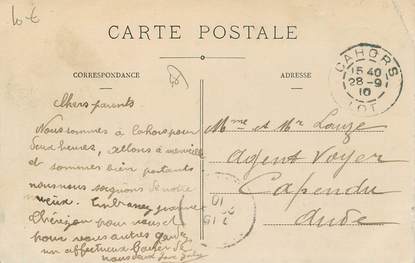 10 €
CARTE POSTALE
CORRESPONDANCE
ADRESSE
CAHORS
15 40
28-9
10
LOT
Chers parents
Nous sommes à Cahors pour
deux heures, allons à merveille
et sommes bien portants
nous nous soignons de notre
mieux. Embrassez
pour
pour vous autres
un affectueux Baiser de
nous
Mme et Mr Lauze
Agent Voyer
Capendu
Aude